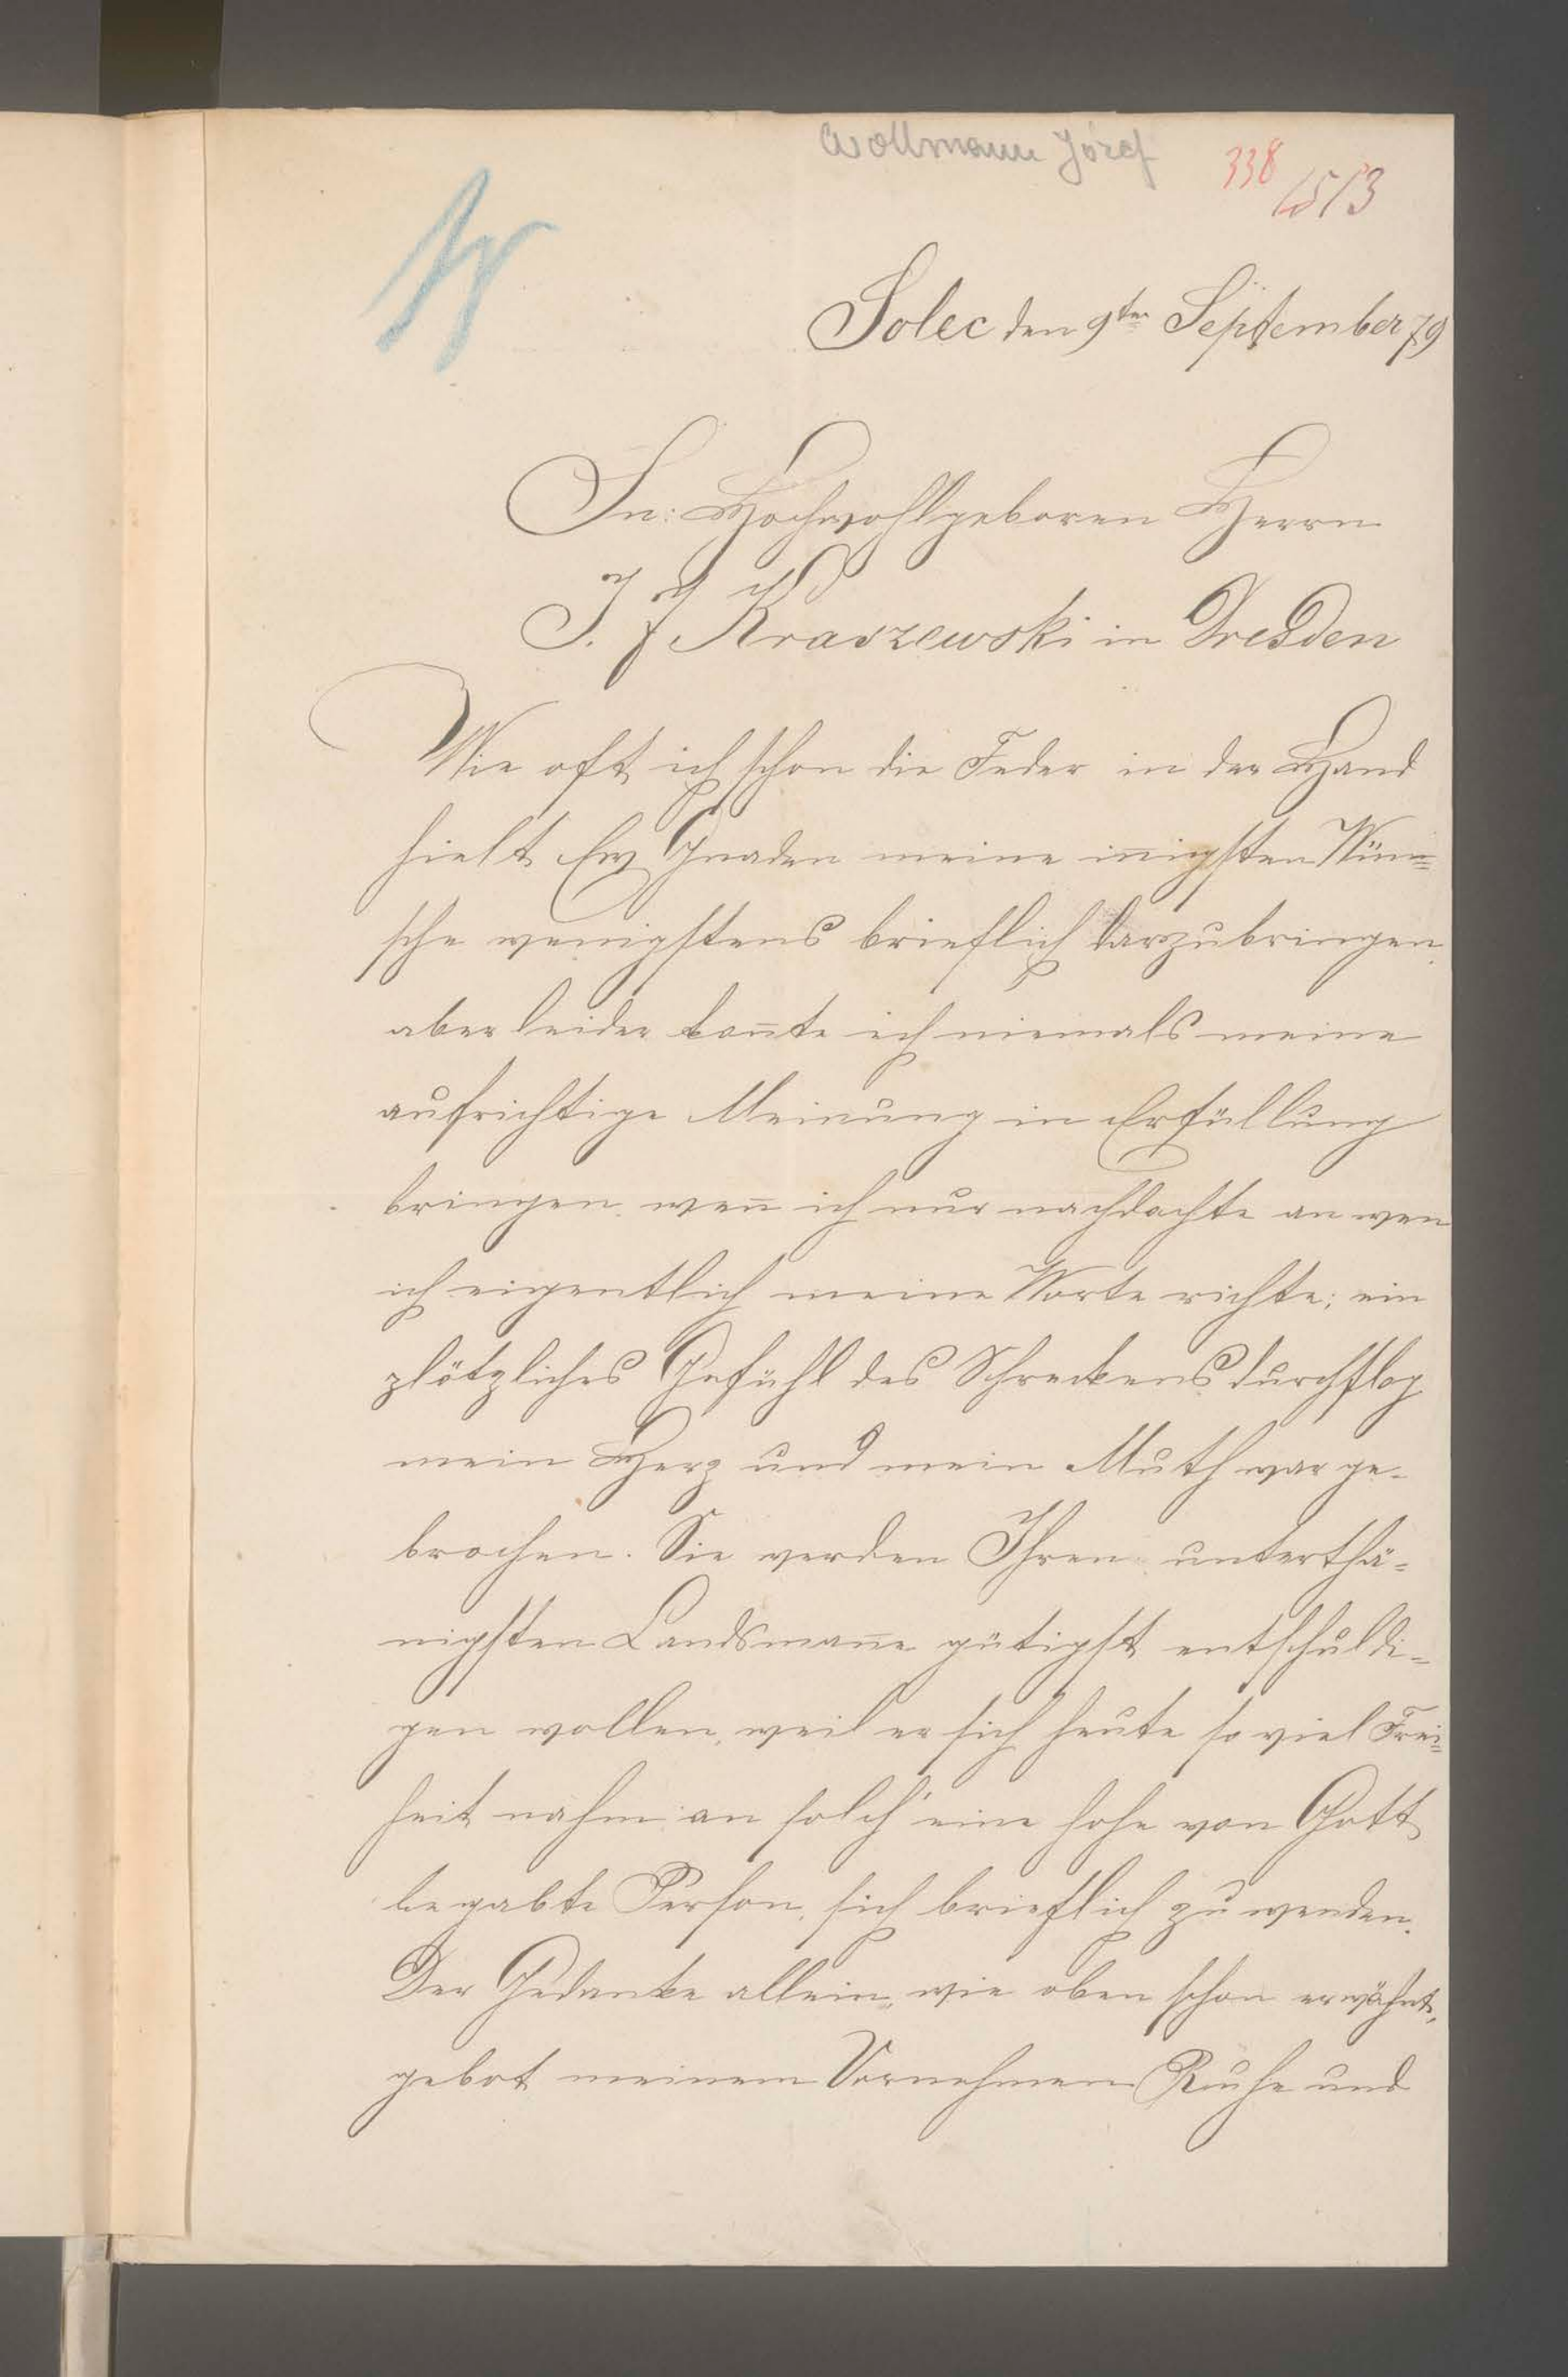 Wollmann Józef
338
1513
W
Solec den 9ten September 79
Sn: Hochwohlgeboren Herrn
J. J Kraszewski in Dresden
Wie oft ich schon die Feder in der Hand
hielt Ew Gnaden meine inigsten Wün=
sche wenigstens brieflich darzubringen,
aber leider kon̄te ich niemals meine
aufrichtige Meinung in Erfüllung
bringen, wen̄ ich nur nachdachte an wen
ich eigentlich meine Worte richte; ein
plötzliches Gefühl des Schreckens durchflog
mein Herz und mein Muth war ge-
brochen. Sie werden Ihren unterthä=
nigsten Landsman̄e gütigst entschuldi=
gen wollen, weil er sich heute so viel Frei=
heit nahm an solch' eine hohe von Gott
begabte Person, sich brieflich zu wenden.
Der Gedanke allein, wie oben schon erwähnt,
gebot meinem Vornehmen Ruhe und